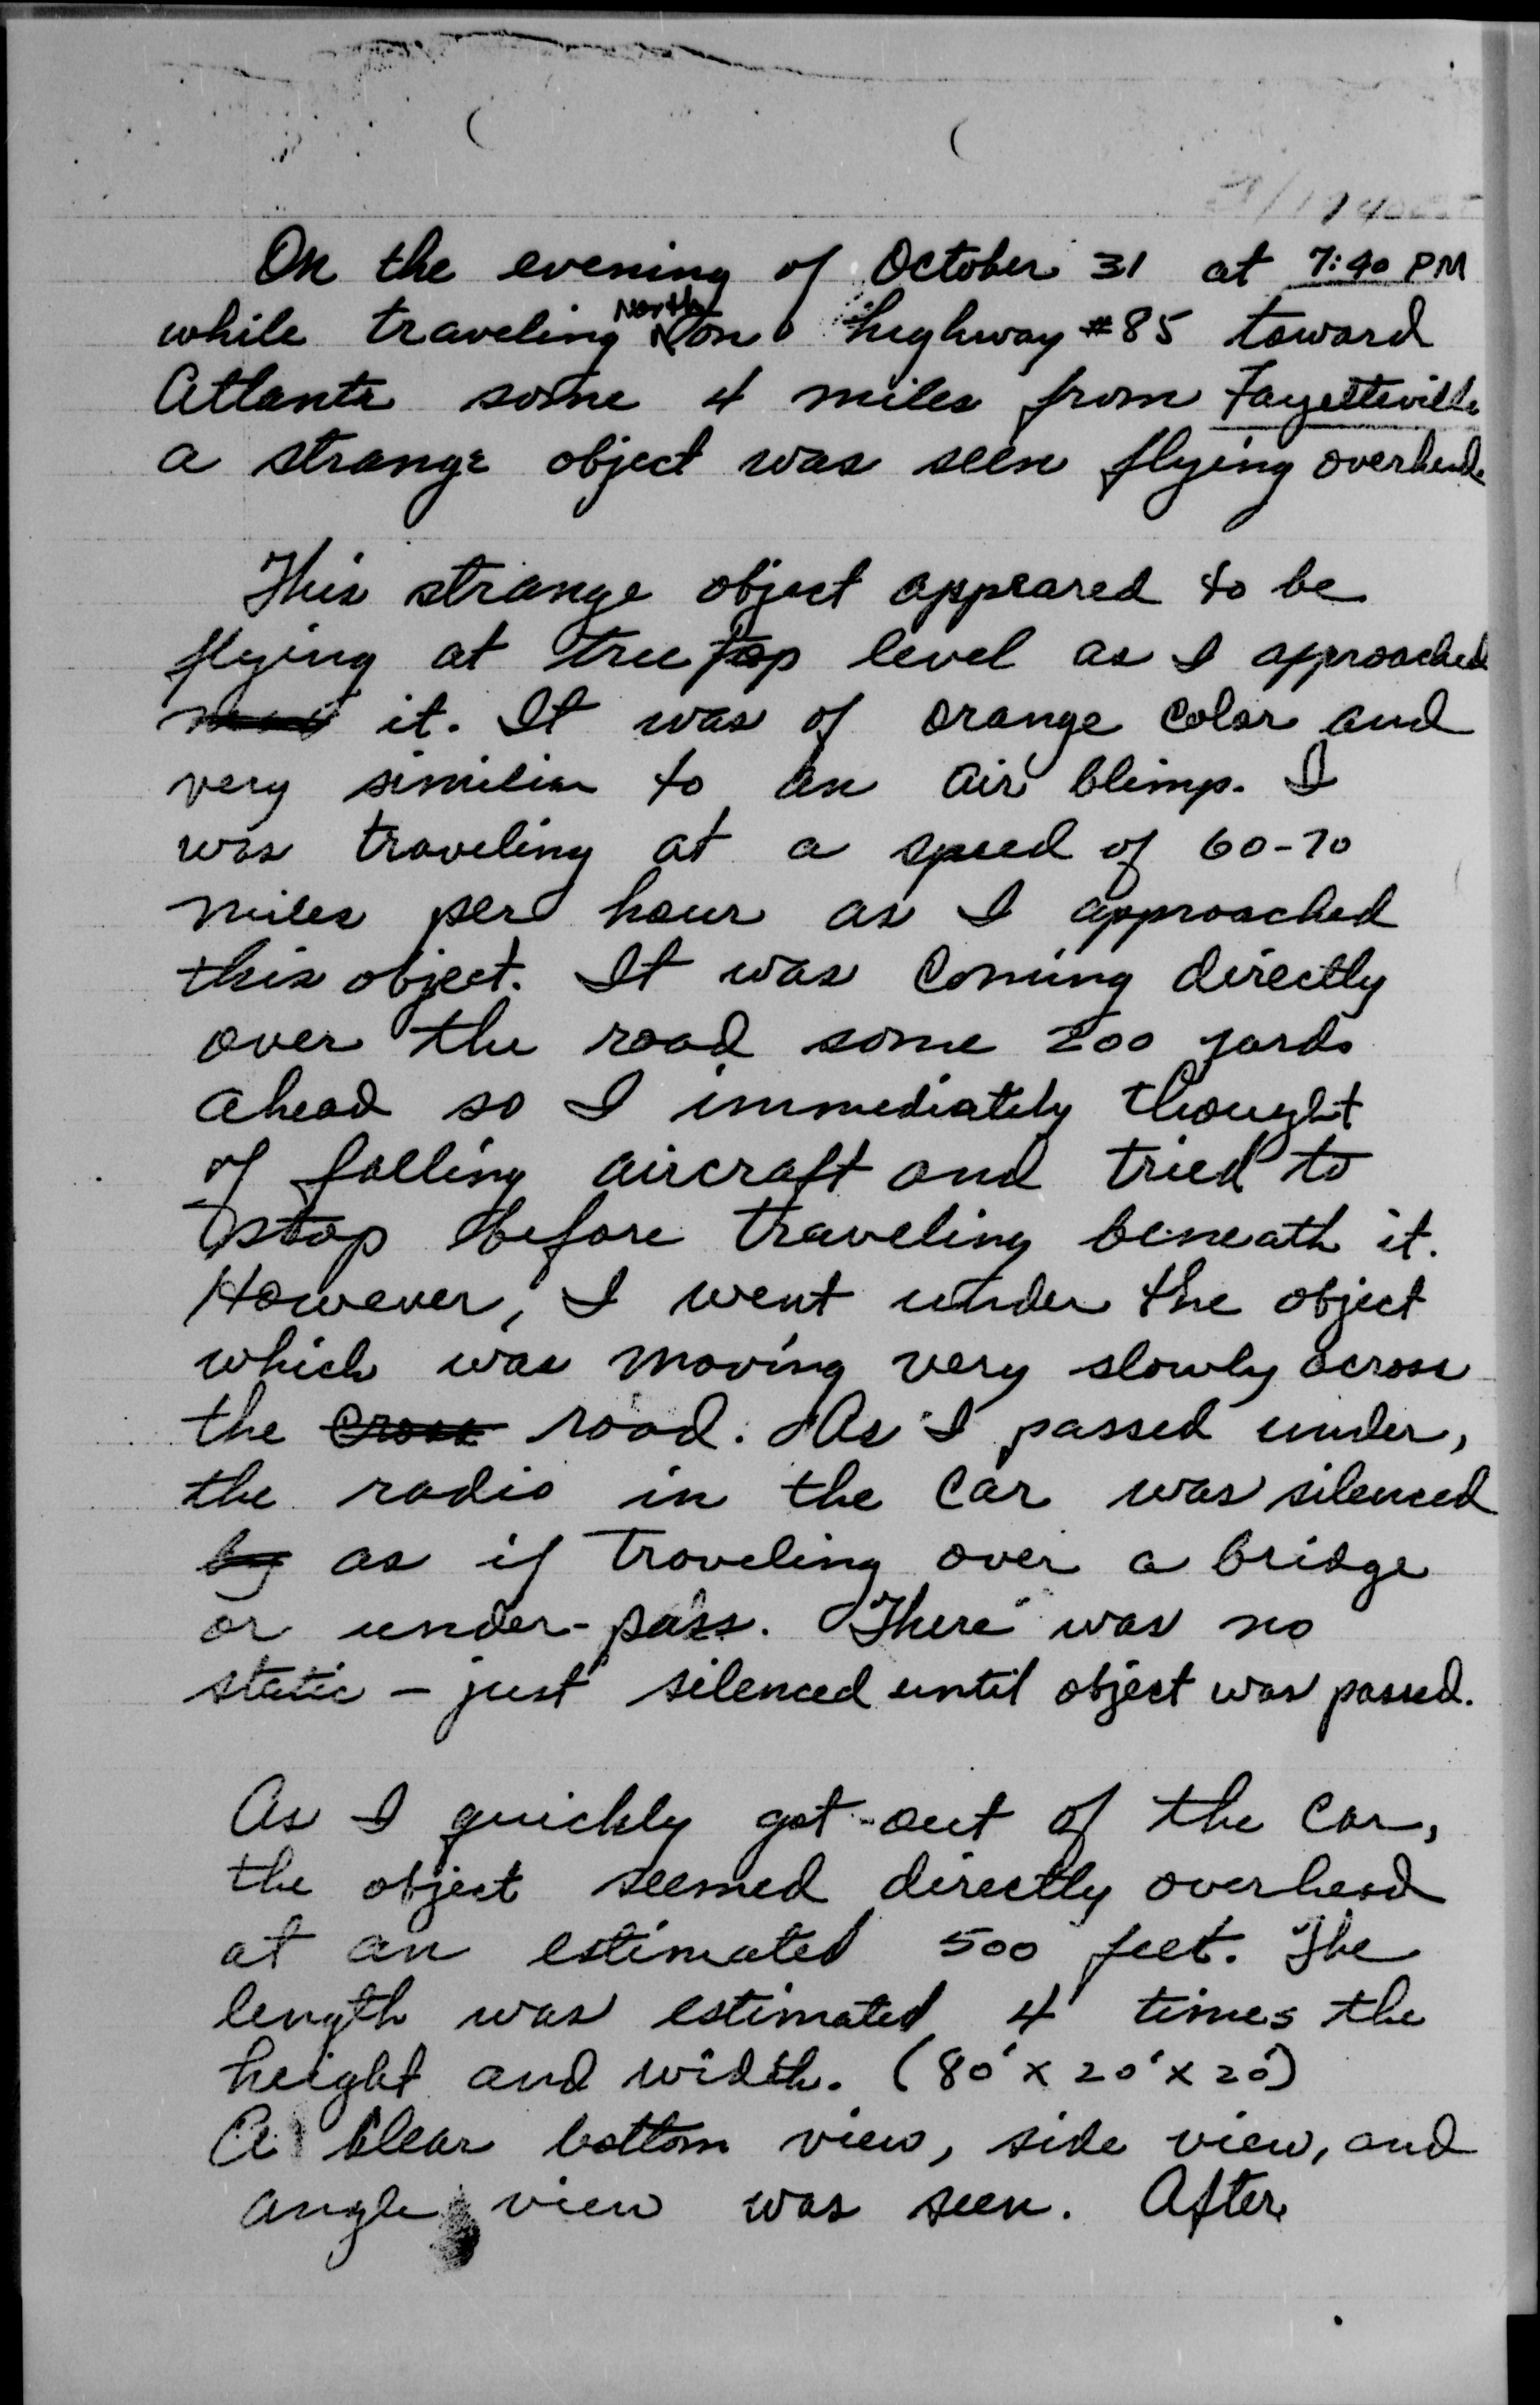 On the evening of October 31 at 7:40 PM
while traveling North on highway #85 toward
Atlanta some 4 miles from Fayetteville
a strange object was seen flying overhead.
This strange object appeared to be
flying at tree top level as I approached
it. It was of orange color and
very similiar to an air blimp. I
was traveling at a speed of 60-70
miles per hour as I approached
this object. It was coming directly
over the road some 200 yards
ahead so I immediately thought
of falling aircraft and tried to
stop before traveling beneath it.
However, I went under the object
which was moving very slowly across
the cross road. As I passed under,
the radio in the car was silenced
by as if traveling over a bridge
or under-pass. There was no
static - just silenced until object was passed.
As I quickly got out of the car,
the object seemed directly overhead
at an estimated 500 feet. The
length was estimated 4 times the
height and width. (80' x 20' x 20')
A clear bottom view, side view, and
angle view was seen. After